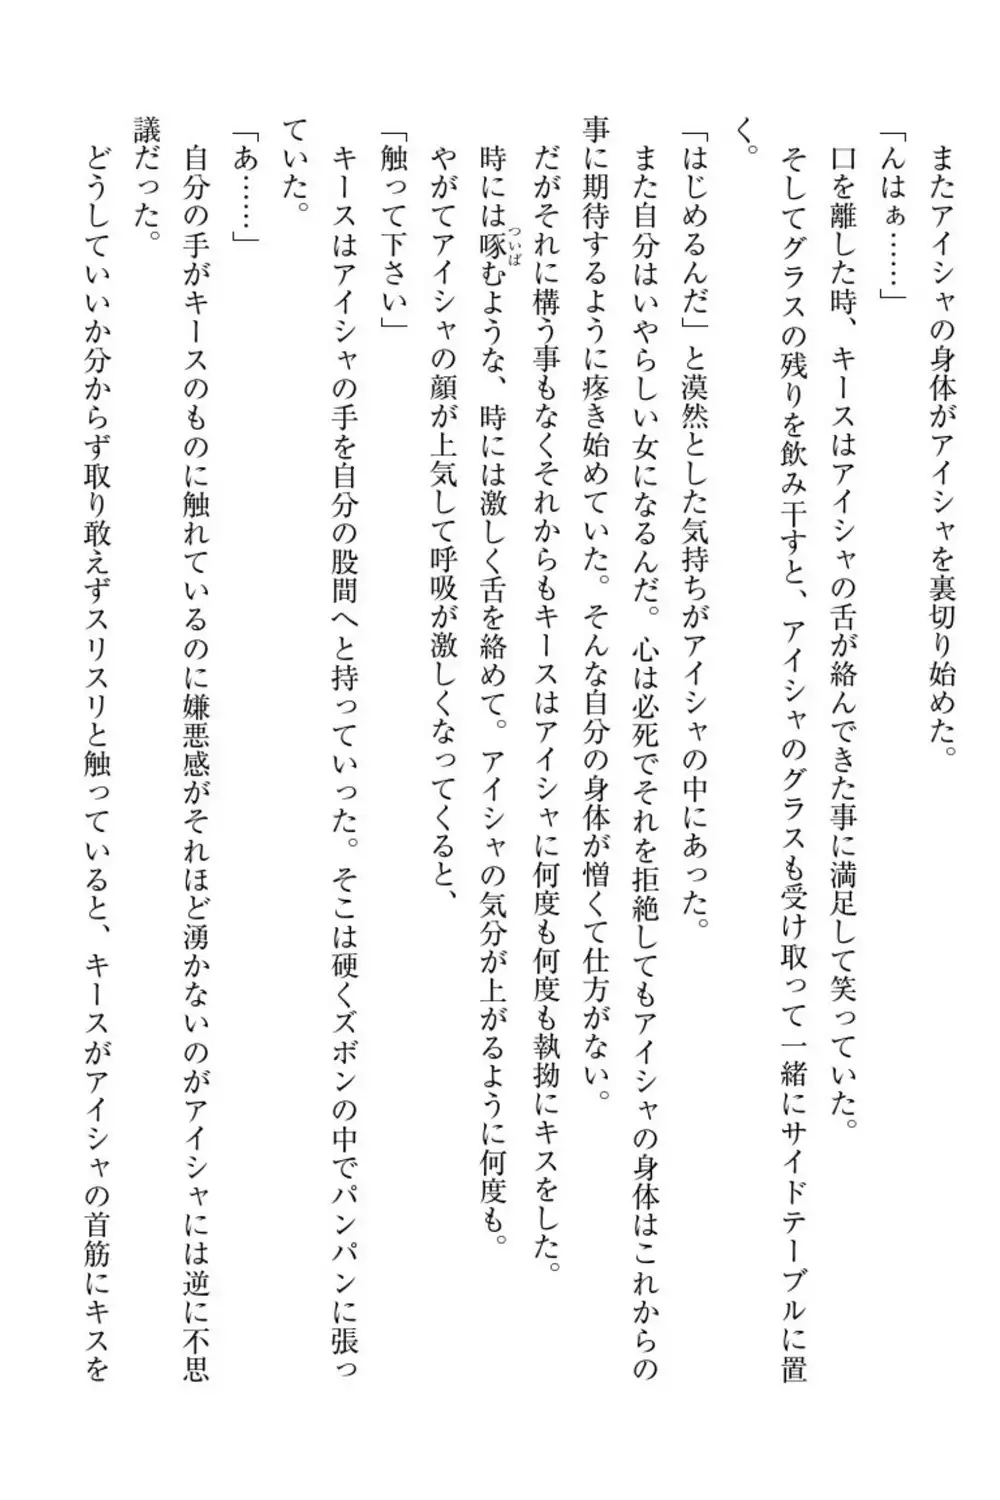 またアイシャの身体がアイシャを裏切り始めた。
「んはぁ……」
口を離した時、キースはアイシャの舌が絡んできた事に満足して笑っていた。
そしてグラスの残りを飲み干すと、アイシャのグラスも受け取って一緒にサイドテーブルに置
く。
「はじめるんだ」と漠然とした気持ちがアイシャの中にあった。
また自分はいやらしい女になるんだ。心は必死でそれを拒絶してもアイシャの身体はこれからの
事に期待するように疼き始めていた。そんな自分の身体が憎くて仕方がない。
だがそれに構う事もなくそれからもキースはアイシャに何度も何度も執拗にキスをした。
時には啄むような、時には激しく舌を絡めて。アイシャの気分が上がるように何度も。
ついば
やがてアイシャの顔が上気して呼吸が激しくなってくると、
「触って下さい」
キースはアイシャの手を自分の股間へと持っていった。そこは硬くズボンの中でパンパンに張っ
ていた。
「あ……」
自分の手がキースのものに触れているのに嫌悪感がそれほど湧かないのがアイシャには逆に不思
議だった。
どうしていいか分からず取り敢えずスリスリと触っていると、キースがアイシャの首筋にキスを